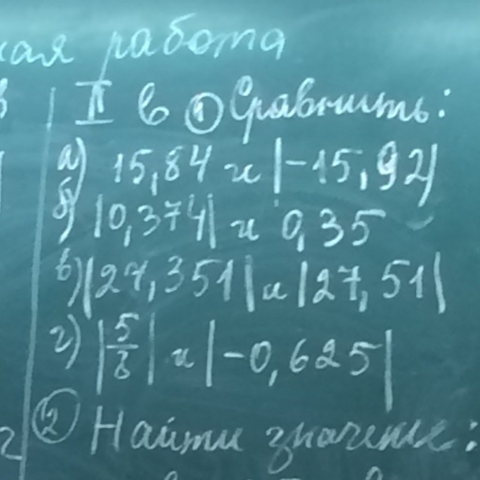 работа
II в ① Сравнить:
а) 15,84 и |-15,92|
б) |0,374| и 0,35
в) |27,351| и |27,51|
г) |5/8| и |-0,625|
② Найти значение: